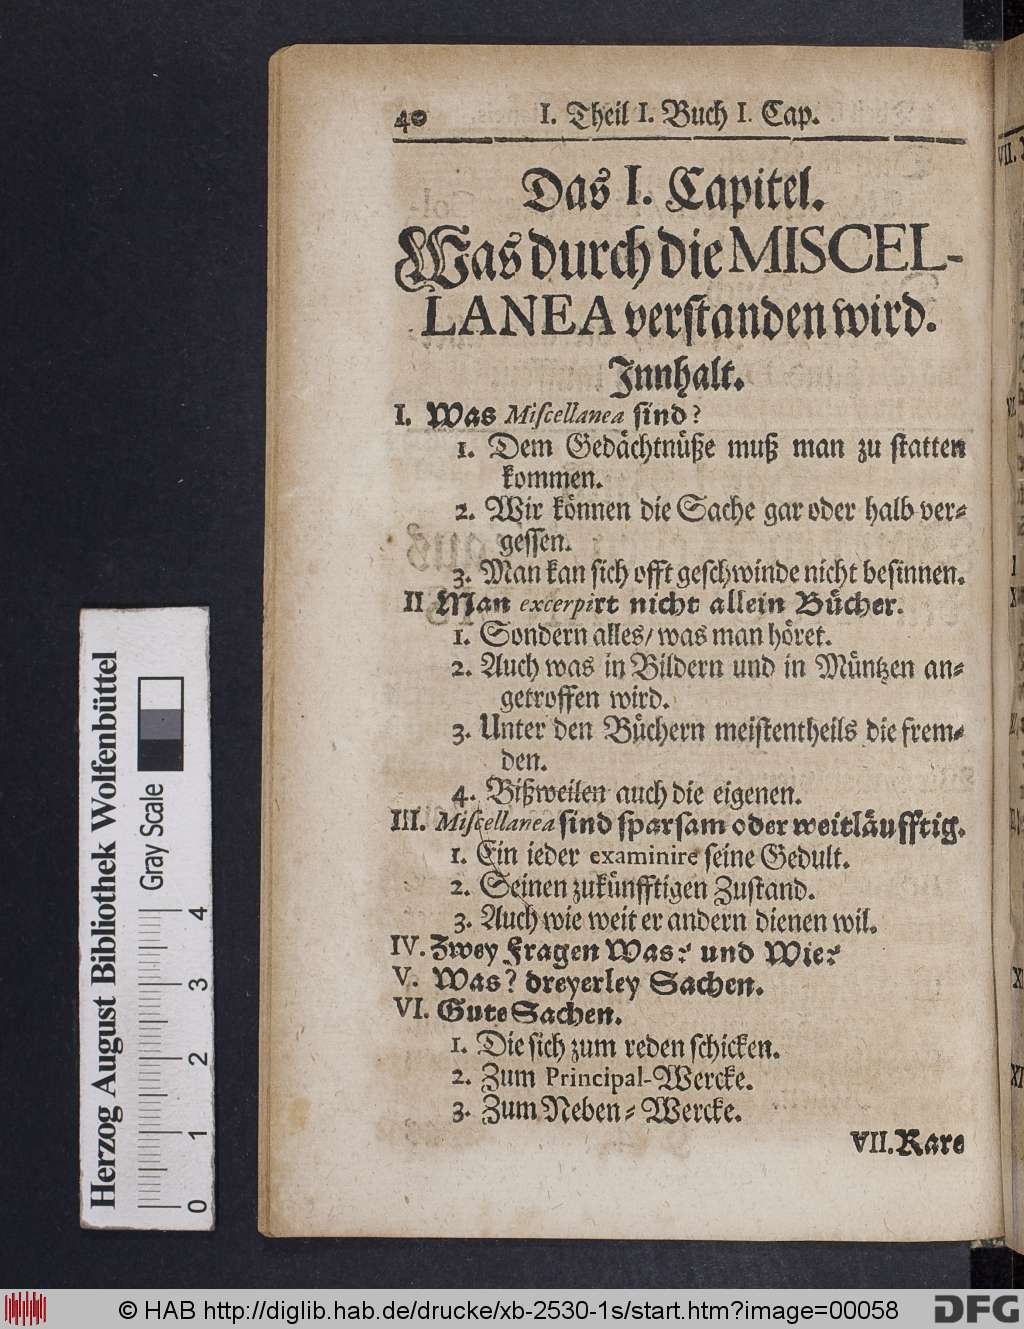 40 I. Theil I. Buch I. Cap.
Das I. Capitel.
Was durch die MISCEL-
LANEA verstanden wird.
Innhalt.
I. Was Miscellanea sind?
1. Dem Gedächtnüße muß man zu statten
kommen.
2. Wir können die Sache gar oder halb ver-
gessen.
3. Man kan sich offt geschwinde nicht besinnen.
II Man excerpirt nicht allein Bücher.
1. Sondern alles/ was man höret.
2. Auch was in Bildern und in Müntzen an-
getroffen wird.
3. Unter den Büchern meistentheils die frem-
den.
4. Bißweilen auch die eigenen.
III. Miscellanea sind sparsam oder weitläufftig.
1. Ein ieder examinire seine Gedult.
2. Seinen zukünfftigen Zustand.
3. Auch wie weit er andern dienen wil.
IV. Zwey Fragen Was? und Wie?
V. Was? dreyerley Sachen.
VI. Gute Sachen.
1. Die sich zum reden schicken.
2. Zum Principal-Wercke.
3. Zum Neben-Wercke.
VII. Rare
Herzog August Bibliothek Wolfenbüttel
Gray Scale
0 1 2 3 4
© HAB http://diglib.hab.de/drucke/xb-2530-1s/start.htm?image=00058
DFG